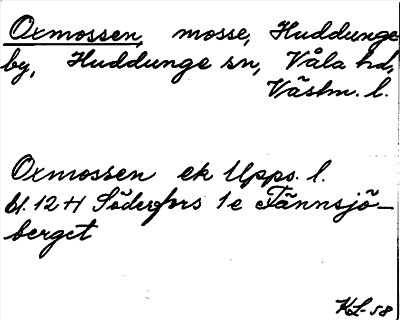 Oxmossen, mosse, Huddunge
by, Huddunge sn, Våla hd,
Västm. l.
Oxmossen ek Upps. l.
bl. 12 H Söderfors 1e Tännsjö-
berget
KL-58